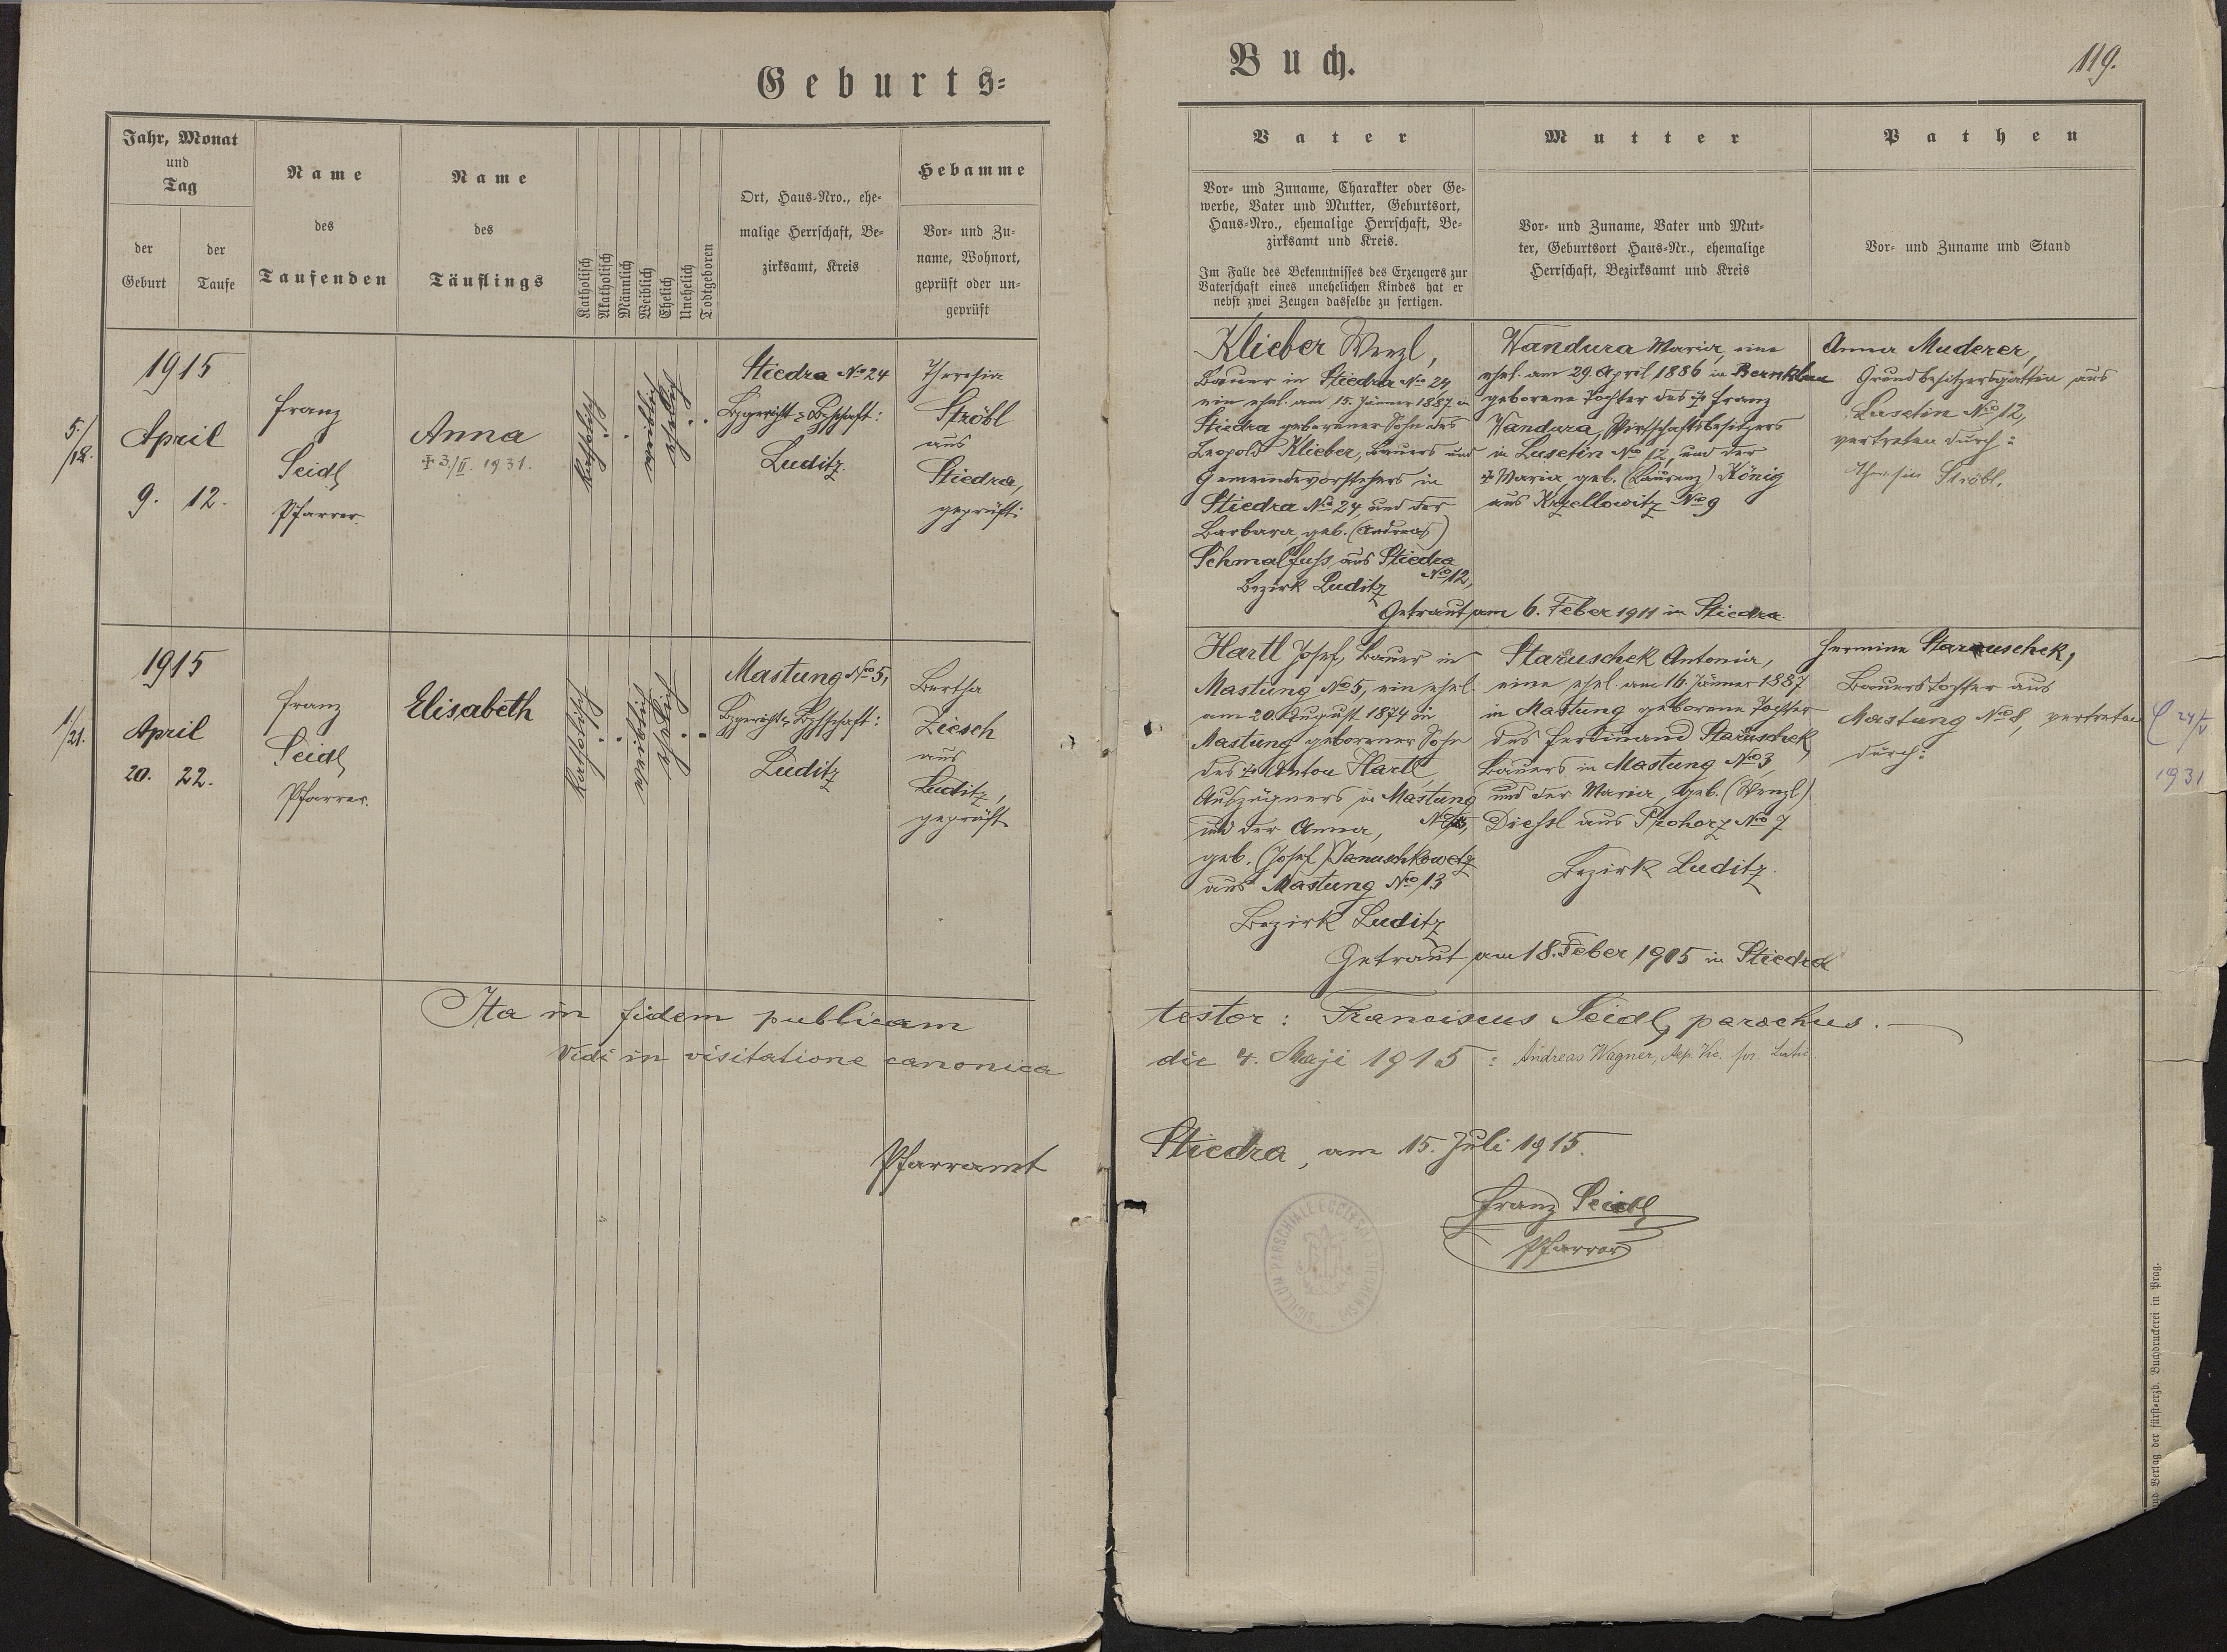 Geburts=
Jahr, Monat
und
Tag
der
Geburt
der
Taufe
Name
des
Taufenden
Name
des
Täuflings
Katholisch
Akatholisch
Männlich
Weiblich
Ehelich
Unehelich
Todtgeboren
Ort, Haus=Nro., ehe=
malige Herrschaft, Be=
zirksamt, Kreis
Hebamme
Vor= und Zu=
name, Wohnort,
geprüft oder un=
geprüft
5./12.
1915
April
9. 12.
Franz
Seidl
Pfarrer.
Anna
3./II. 1931.
katholisch
weiblich
ehelich
Stiedra No 24
Luditz
Theresia
Ströbl
aus
Stiedra,
geprüft.
1/21.
1915
April
20. 22.
Franz
Seidl
Pfarrer.
Elisabeth
katholisch
weiblich
ehelich
Mastung No 5,
Luditz
Bertha
Ziesch
aus
Luditz,
geprüft
Ita in fidem publicam
Vidi in visitatione canonica
Pfarramt
Buch.
119.
Vater
Vor= und Zuname, Charakter oder Ge=
werbe, Vater und Mutter, Geburtsort,
Haus=Nro., ehemalige Herrschaft, Be=
zirksamt und Kreis.
Im Falle des Bekenntnisses des Erzeugers zur
Vaterschaft eines unehelichen Kindes hat er
nebst zwei Zeugen dasselbe zu fertigen.
Mutter
Vor= und Zuname, Vater und Mut=
ter, Geburtsort Haus=Nr., ehemalige
Herrschaft, Bezirksamt und Kreis
Pathen
Vor= und Zuname und Stand
Klieber Wenzl,
Bauer in Stiedra No 24,
ein ehel. am 15. Jänner 1887 in
Stiedra geborener Sohn des
Leopold Klieber, Bauers und
Gemeindevorstehers in
Stiedra No 24, und der
Barbara, geb. (Andreas)
Schmalfuss aus Stiedra
No 12,
Bezirk Luditz
Wandura Maria, eine
ehel. am 29. April 1886 in Bernklau
geborene Tochter des † Franz
Wandura, Wirtschaftsbesitzers
in Lusetin No 12, und der
† Maria, geb. (Laurenz) König
aus Krzellowitz No 9
Anna Muderer,
Grundbesitzersgattin aus
Lusetin No 12,
vertreten durch:
Theresia Ströbl.
Getraut am 6. Feber 1911 in Stiedra.
Hartl Josef, Bauer in
Mastung No 5, ein ehel.
am 20. August 1874 in
Mastung geborener Sohn
des † Anton Hartl,
Auszügners in Mastung
und der Anna,
geb. (Josef) Januschkowetz
aus Mastung No 13
Bezirk Luditz
Staruschek Antonia,
eine ehel. am 16. Jänner 1887
in Mastung geborene Tochter
des Ferdinand Staruschek,
Bauers in Mastung No 3,
und der Maria, geb. (Wenzl)
Diessl aus Prohorz No 7
Bezirk Luditz.
Hermine Staruschek,
Bauerstochter aus
Mastung No 8, vertreten
durch:
24/V
1931
Getraut am 18. Feber 1905 in Stiedra
testor: Franciscus Seidl, parochus.
die 4. Maji 1915: Andreas Wagner,
Stiedra, am 15. Juli 1915.
Franz Seidl
Pfarrer
und Verlag der fürst=erzb. Buchdruckerei in Prag.